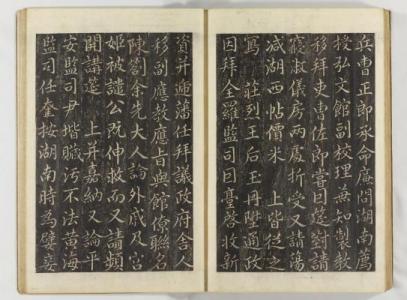 兵曹正郎承命廉問湖南薦
授弘文館副校理兼知製教
移拜吏曹佐郎嘗因筵對請
寢淑儀房兩處折受又請蕩
減湖西帖價米 上皆從之
寫莊烈王后玉冊陞通政
因拜全羅監司因臺啓收新
資并遞藩任拜議政府舍人
移副應教應旨與館僚聯名
陳劄余先大人論外戚及宮
姬被譴公既伸救而又請頻
開講筵 上并嘉納又論平
安監司尹堦贓污不法黃海
監司任奎按湖南時為嬖妾